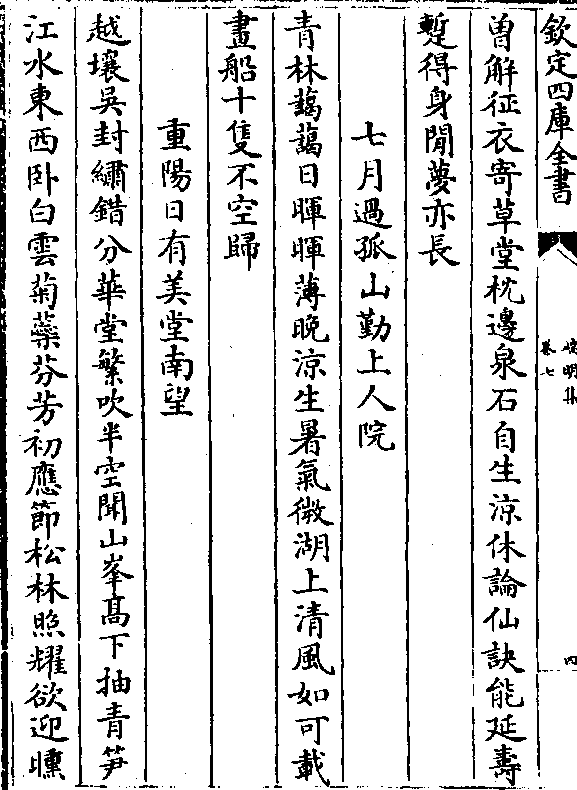 欽定四庫全書
端明集
卷七
四
曽解征衣寄草堂枕邊泉石自生涼休論仙訣能延壽
蹔得身閒夢亦長
七月過孤山勤上人院
青林藹藹日暉暉薄晚涼生暑氣微湖上清風如可載
畫船十隻不空歸
重陽日有美堂南望
越壤吳封繡錯分華堂繁吹半空聞山峯髙下抽青笋
江水東西卧白雲菊蘂芬芳初應節松林照耀欲迎曛